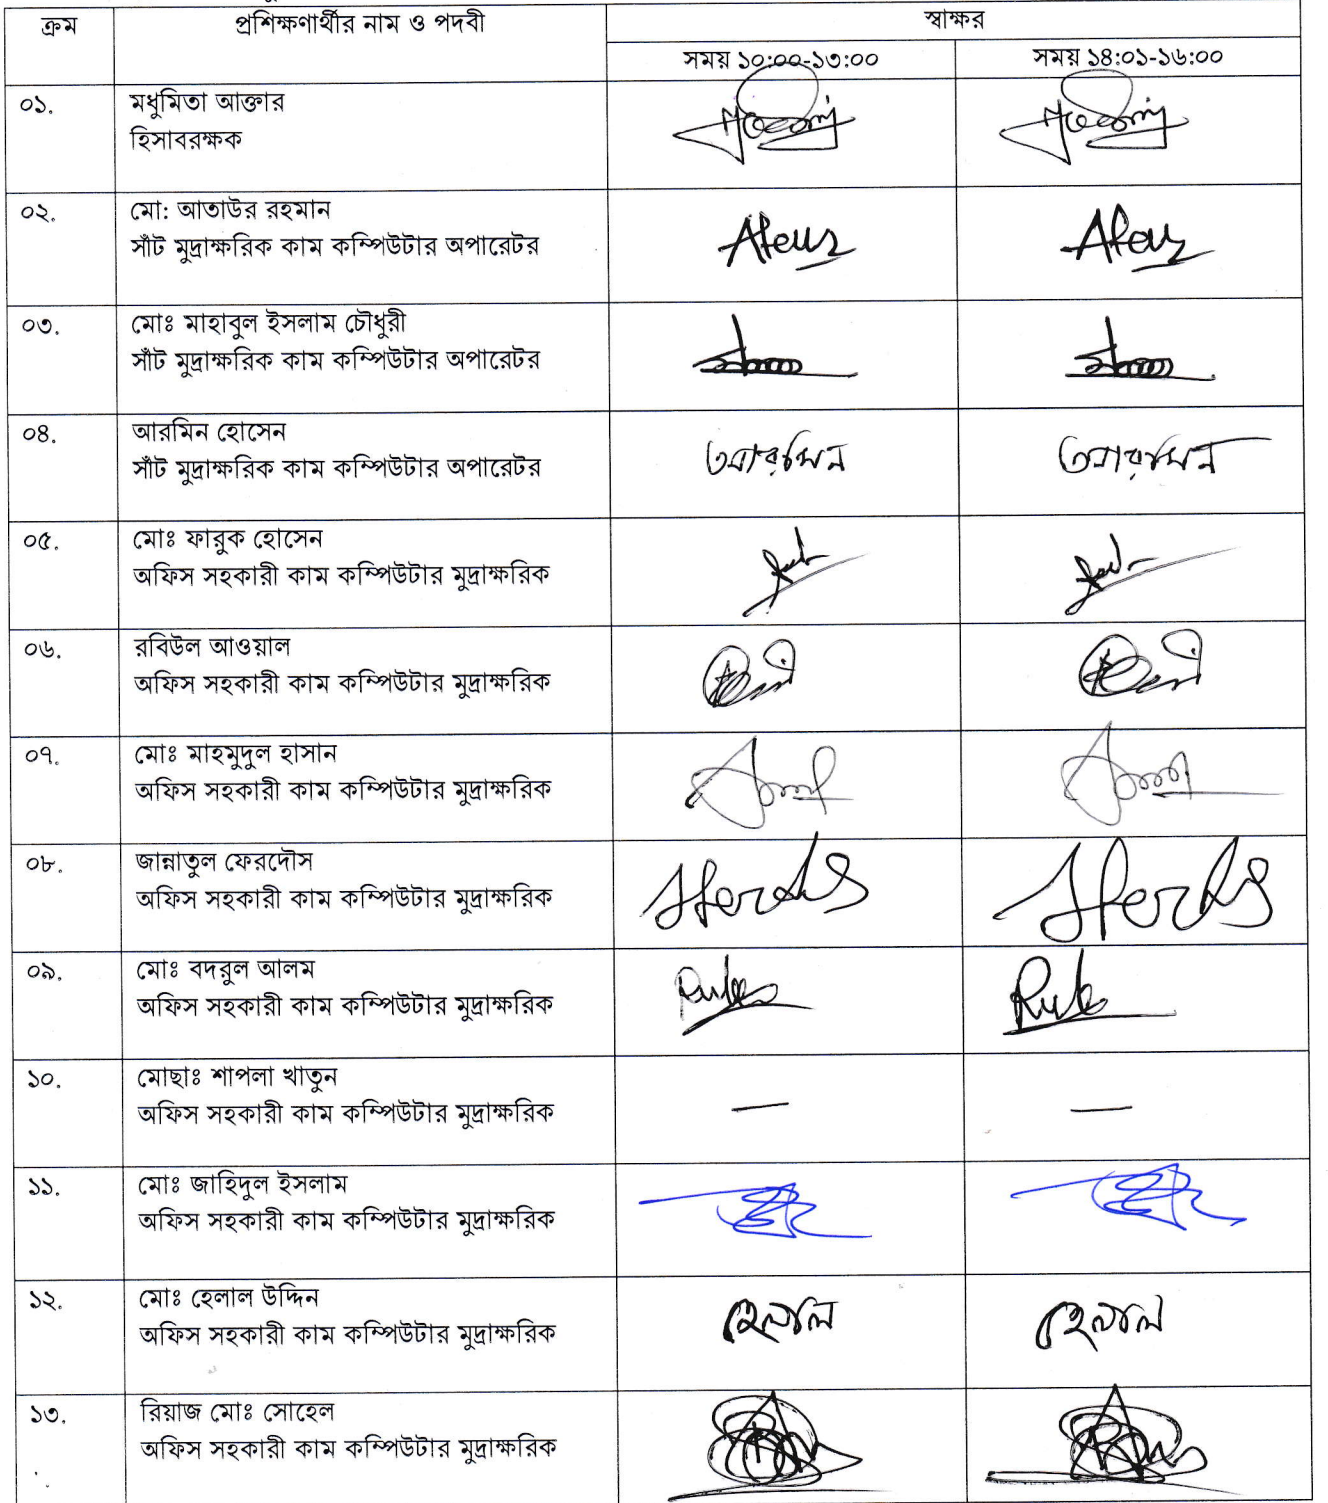 ক্রম প্রশিক্ষণার্থীর নাম ও পদবী স্বাক্ষর
সময় ১০:০০-১৩:০০ সময় ১৪:০১-১৬:০০
০১. মধুমিতা আক্তার
হিসাবরক্ষক
০২. মো: আতাউর রহমান
সাঁট মুদ্রাক্ষরিক কাম কম্পিউটার অপারেটর
০৩. মোঃ মাহাবুল ইসলাম চৌধুরী
সাঁট মুদ্রাক্ষরিক কাম কম্পিউটার অপারেটর
০৪. আরমিন হোসেন
সাঁট মুদ্রাক্ষরিক কাম কম্পিউটার অপারেটর আরমিন আরমিন
০৫. মোঃ ফারুক হোসেন
অফিস সহকারী কাম কম্পিউটার মুদ্রাক্ষরিক
০৬. রবিউল আওয়াল
অফিস সহকারী কাম কম্পিউটার মুদ্রাক্ষরিক
০৭. মোঃ মাহমুদুল হাসান
অফিস সহকারী কাম কম্পিউটার মুদ্রাক্ষরিক
০৮. জান্নাতুল ফেরদৌস
অফিস সহকারী কাম কম্পিউটার মুদ্রাক্ষরিক
০৯. মোঃ বদরুল আলম
অফিস সহকারী কাম কম্পিউটার মুদ্রাক্ষরিক
১০. মোছাঃ শাপলা খাতুন
অফিস সহকারী কাম কম্পিউটার মুদ্রাক্ষরিক — —
১১. মোঃ জাহিদুল ইসলাম
অফিস সহকারী কাম কম্পিউটার মুদ্রাক্ষরিক
১২. মোঃ হেলাল উদ্দিন
অফিস সহকারী কাম কম্পিউটার মুদ্রাক্ষরিক হেলাল হেলাল
১৩. রিয়াজ মোঃ সোহেল
অফিস সহকারী কাম কম্পিউটার মুদ্রাক্ষরিক